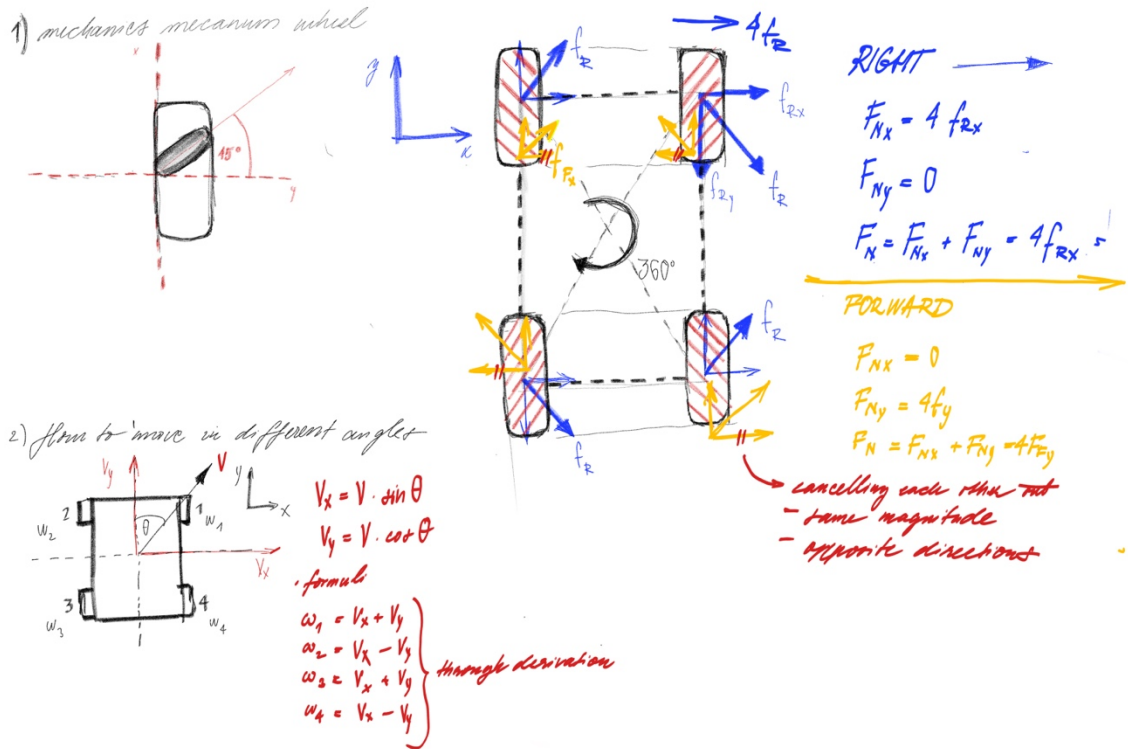 1) mechanics mecanum wheel
x
45°
y
y
x
f_R
4f_R
f_Rx
f_Ry
f_R
f_Fx
360°
f_R
f_R
RIGHT
F_Nx = 4 f_Rx
F_Ny = 0
F_N = F_Nx + F_Ny = 4f_Rx =
FORWARD
F_Nx = 0
F_Ny = 4f_y
F_N = F_Nx + F_Ny = 4F_Fy
cancelling each other out
- same magnitude
- opposite directions
2) How to move in different angles
V_y
V
y
x
2
θ
1
w_2
w_1
V_x
3
4
w_3
w_4
V_x = V · sin θ
V_y = V · cos θ
· formuli
ω_1 = V_x + V_y
ω_2 = V_x - V_y
ω_3 = V_x + V_y
ω_4 = V_x - V_y
through derivation